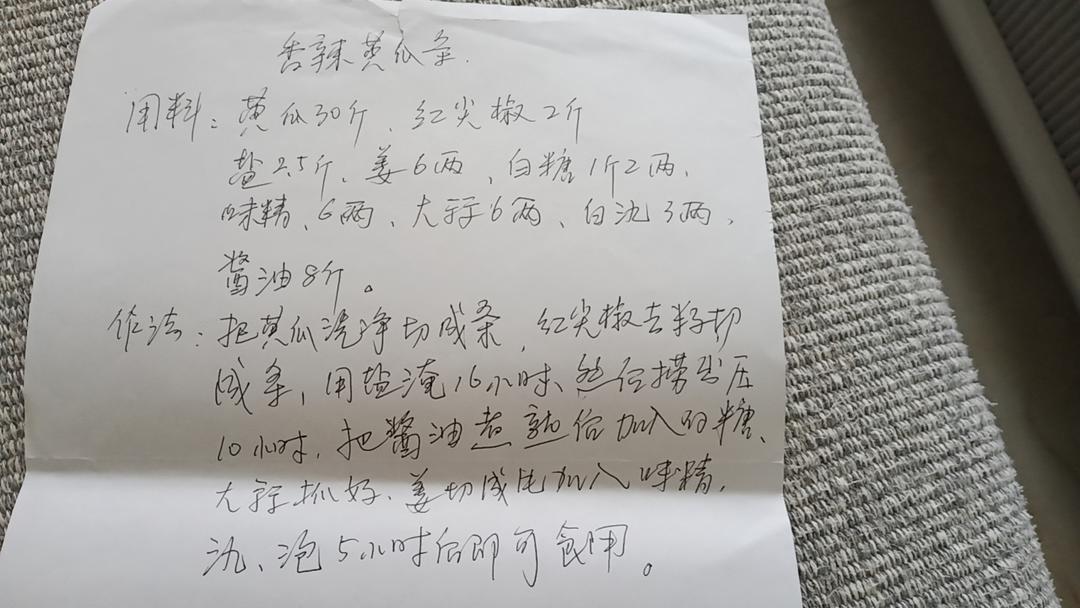 香辣黄瓜条.
用料：黄瓜30斤、红尖椒2斤
盐2.5斤、姜6两、白糖1斤2两、
味精、6两、大辛6两、白氿3两、
酱油8斤。
作法：把黄瓜洗净切成条，红尖椒去籽切
成条，用盐淹16小时、然后捞出压
10小时，把酱油煮熟后加入白糖、
大辛抓好、姜切成加入味精，
氿、泡5小时后即可食用。